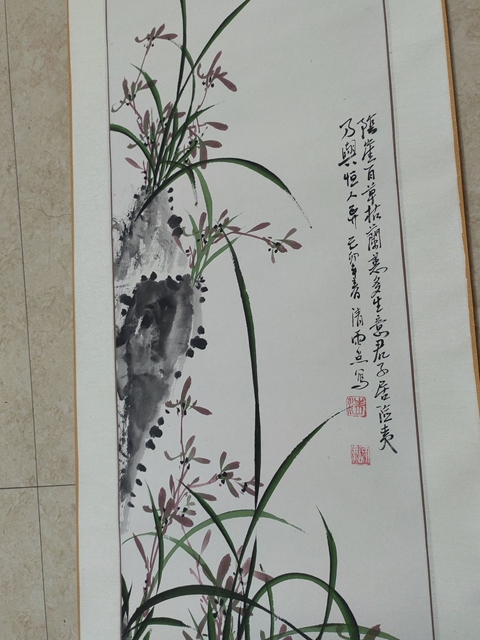 陰崖百草枯蘭蕙多生意君子居險夷
乃與恒人异 己卯年春 清雨 寫